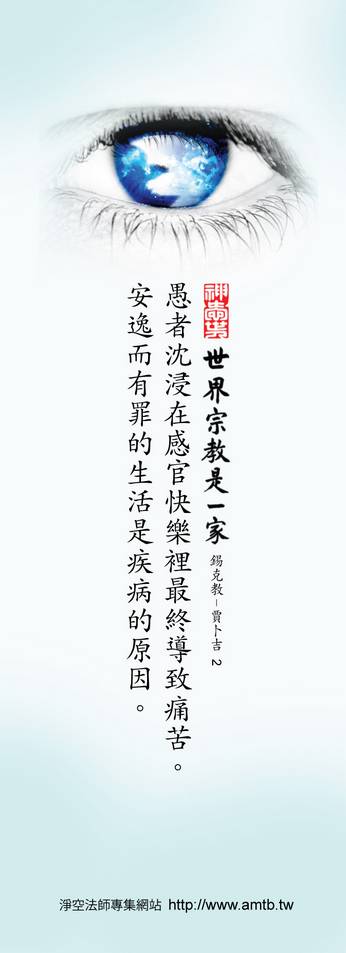 神愛世人
世界宗教是一家 錫克教－賈卜吉 2
愚者沈浸在感官快樂裡最終導致痛苦。
安逸而有罪的生活是疾病的原因。
淨空法師專集網站 http://www.amtb.tw